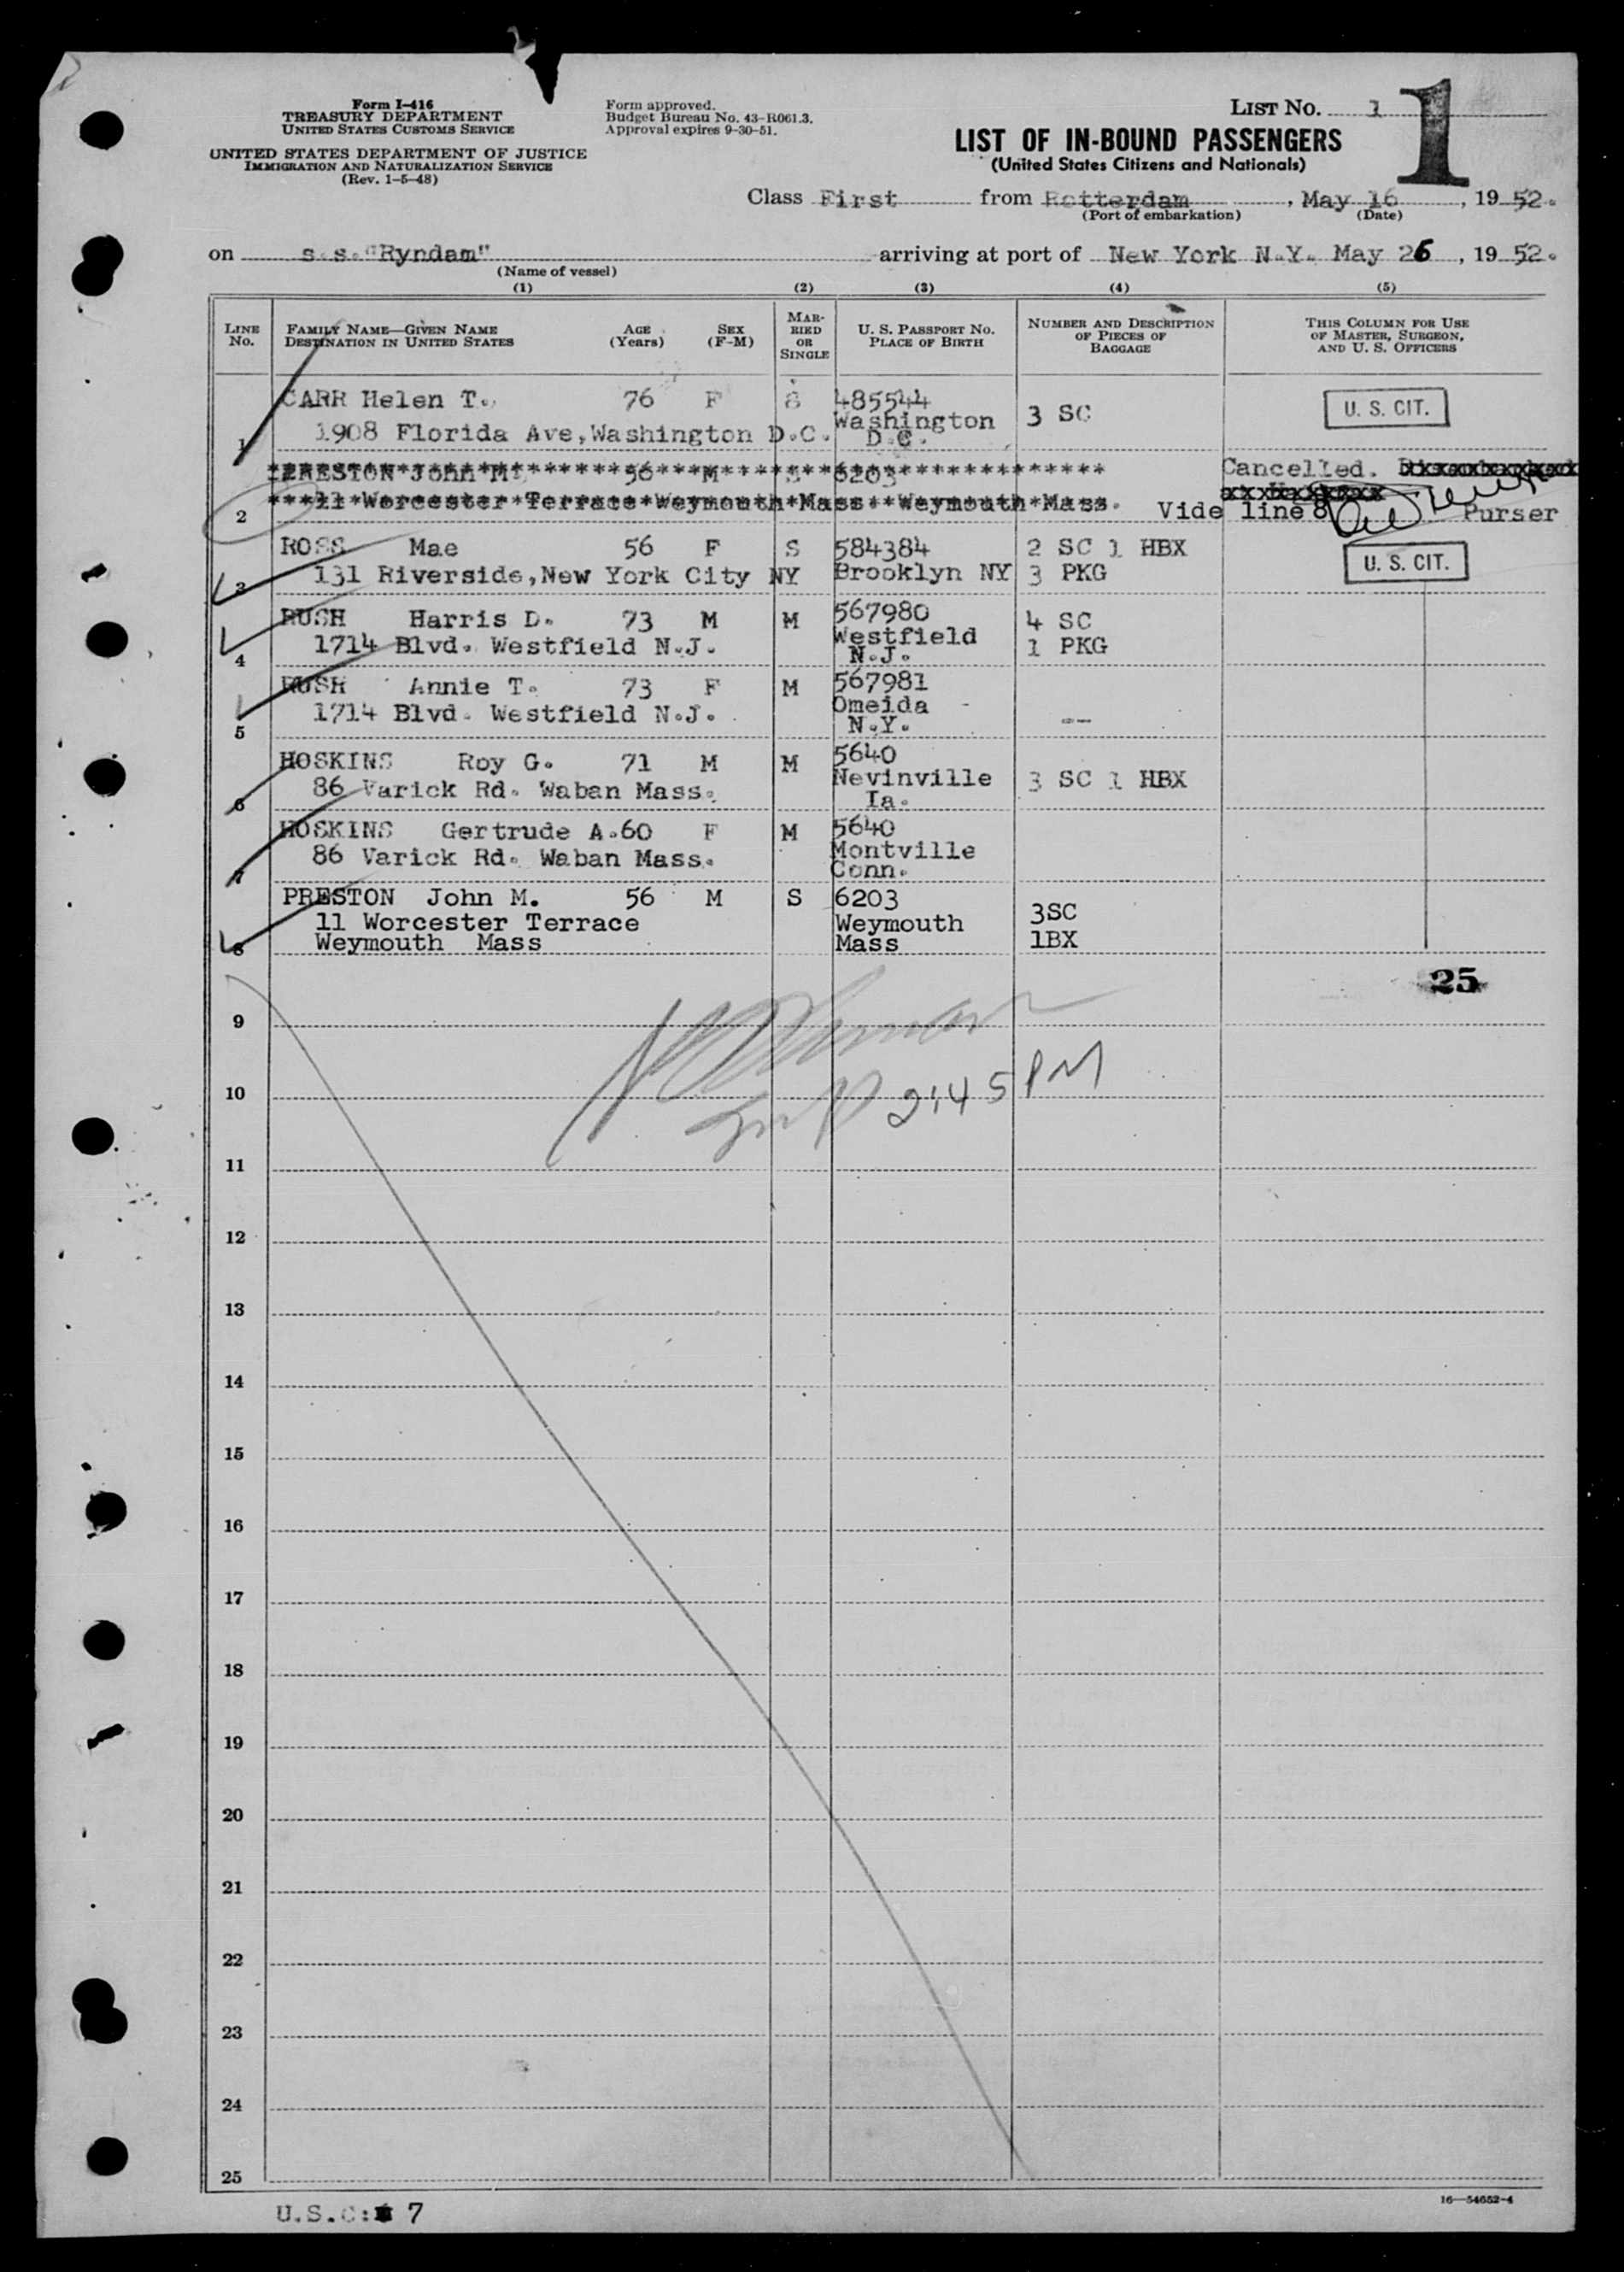 Form I-416
TREASURY DEPARTMENT
UNITED STATES CUSTOMS SERVICE
UNITED STATES DEPARTMENT OF JUSTICE
IMMIGRATION AND NATURALIZATION SERVICE
(Rev. 1-5-48)
Form approved.
Budget Bureau No. 43-R061.3.
Approval expires 9-30-51.
LIST NO. 1
1
LIST OF IN-BOUND PASSENGERS
(United States Citizens and Nationals)
Class First from Rotterdam, May 16, 19 52.
(Port of embarkation) (Date)
on s.s."Ryndam" arriving at port of New York N.Y. May 26, 19 52.
(Name of vessel)
(1) (2) (3) (4) (5)
LINE No.
FAMILY NAME—GIVEN NAME
DESTINATION IN UNITED STATES
AGE (Years)
SEX (F-M)
MARRIED OR SINGLE
U. S. PASSPORT NO.
PLACE OF BIRTH
NUMBER AND DESCRIPTION OF PIECES OF BAGGAGE
THIS COLUMN FOR USE OF MASTER, SURGEON, AND U. S. OFFICERS
1 CARR Helen T. 76 F S 485544 3 SC U. S. CIT.
1908 Florida Ave,Washington D.C. Washington D.C.
2 PRESTON John M 56 M S 6203 Cancelled.
11 Worcester Terrace Weymouth Mass Weymouth Mass. Vide line 8 Purser
3 ROSS Mae 56 F S 584384 2 SC 1 HBX U. S. CIT.
131 Riverside,New York City NY Brooklyn NY 3 PKG
4 RUSH Harris D. 73 M M 567980 4 SC
1714 Blvd. Westfield N.J. Westfield N.J. 1 PKG
5 RUSH Annie T. 73 F M 567981
1714 Blvd. Westfield N.J. Omeida N.Y. --
6 HOSKINS Roy G. 71 M M 5640
86 Varick Rd. Waban Mass. Nevinville Ia. 3 SC 1 HBX
7 HOSKINS Gertrude A. 60 F M 5640
86 Varick Rd. Waban Mass. Montville Conn.
8 PRESTON John M. 56 M S 6203 3SC
11 Worcester Terrace Weymouth 1BX
Weymouth Mass Mass
25
9
10
2:45 PM
11
12
13
14
15
16
17
18
19
20
21
22
23
24
25
U.S.C: 7
16—54652-4